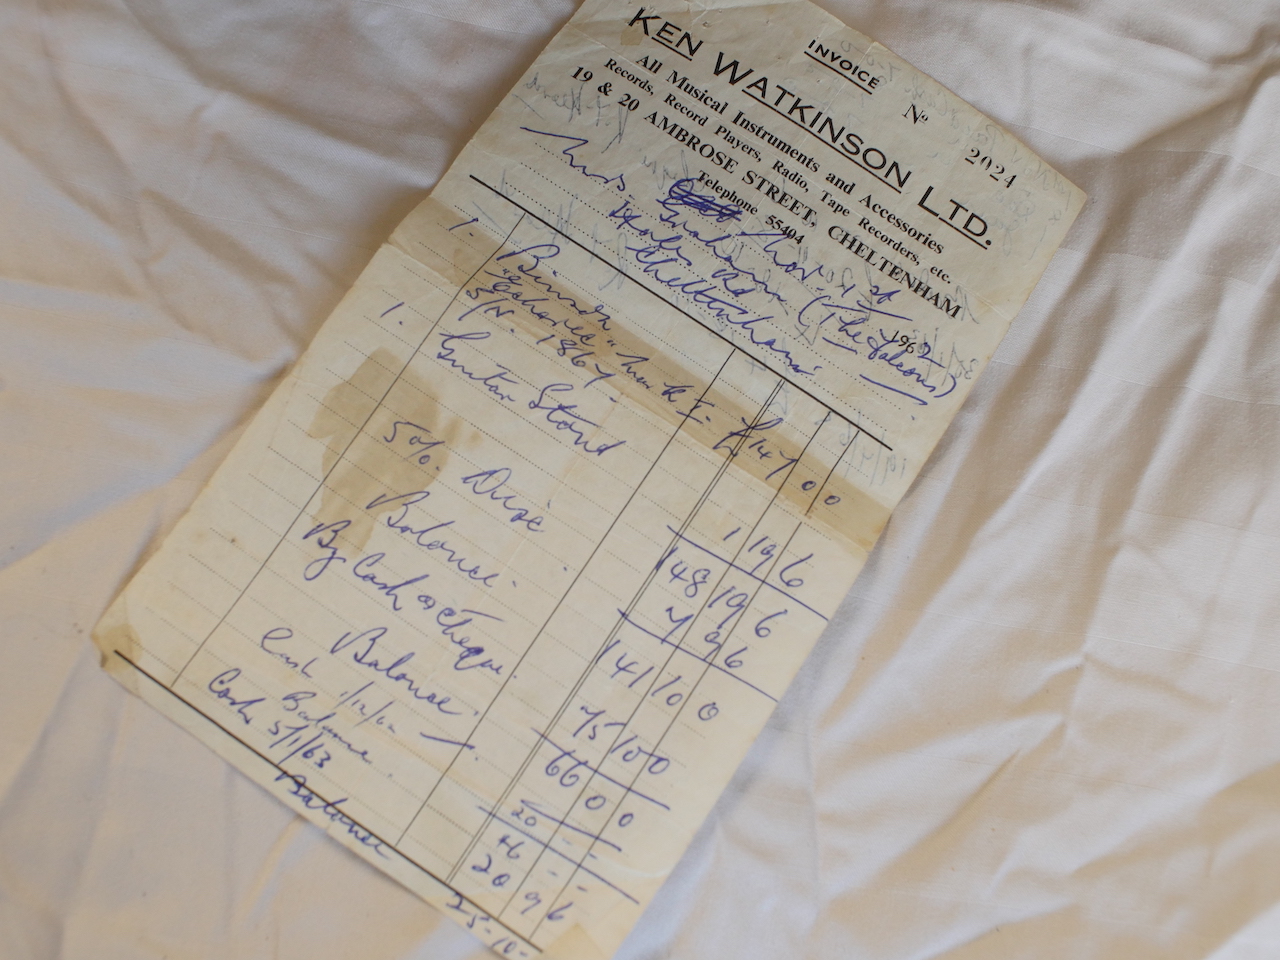 INVOICE Nº 2024
KEN WATKINSON LTD.
All Musical Instruments and Accessories
Records, Record Players, Radio, Tape Recorders, etc.
19 & 20 AMBROSE STREET, CHELTENHAM
Telephone 55404
Nov. 1st 1962
Graham (The
Hales Rd
Cheltenham.
1. Binson
"Echorec" £147 0 0
S/N. 1867
1. Guitar Stand 1 19 6
148 19 6
5%. Disc 7 9 6
Balance. 141 10 0
By Cash & Cheque. 75 10 0
Balance. 66 0 0
Cash 1/12/62 20 - -
Balance. 46 - -
Cash 5/1/63 20 9 6
Balance 25-10-